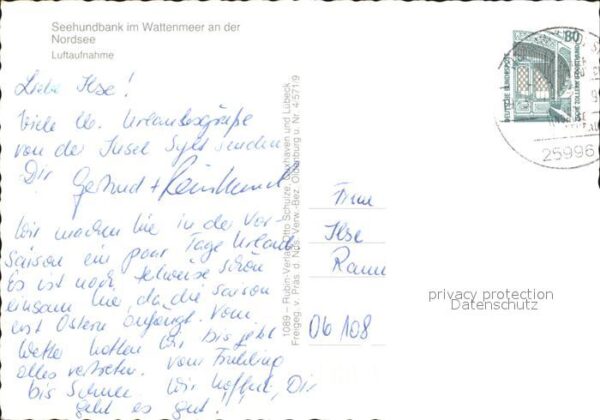 Seehundbank im Wattenmeer an der
Nordsee
Luftaufnahme
Liebe Ilse!
Viele lb. Urlaubsgrüße
von der Insel Sylt senden
Dir Gertrud + Reinhard
Wir machen hie in der Vor-
saison ein paar Tage Urlaub
Es ist noch teilweise schön
einsam hie da die Saison
erst Ostern anfängt. Vom
Wetter hatten wir bis jetzt
alles vertreten. vom Frühling
bis Schnee. Wir hoffen, Dir
geht es gut!
1089 – Rubin-Verlag Otto Schulze, Cuxhaven und Lübeck
Freigeg. v. Präs. d. Nds. Verw.-Bez. Oldenburg u. Nr. 4/571/9
80
DEUTSCHE BUNDESPOST
25996
Frau
Ilse
06108
privacy protection
Datenschutz